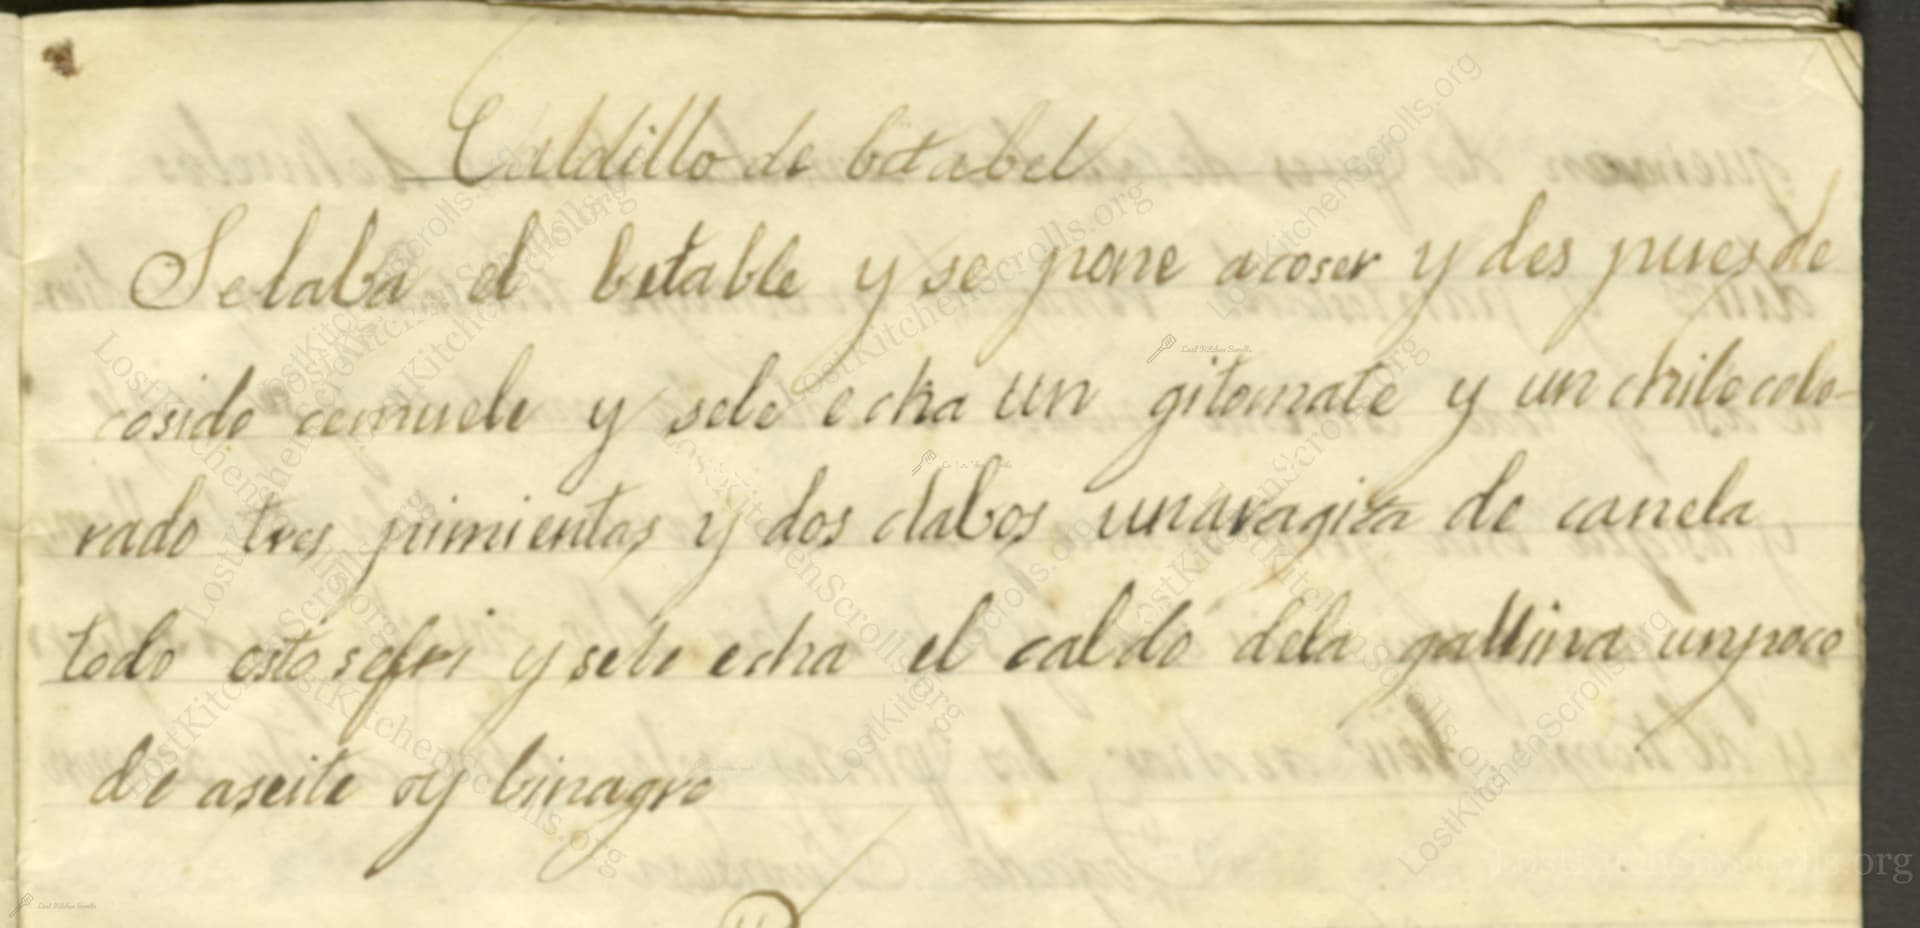 Caldillo de betabel
Se laba el betable y se pone acoser y des pues de
cosido cemuele y sele echa un gitomate y un chile colo-
rado tres pimientas y dos clabos unaragita de canela
todo esto sefri y sele echa el caldo dela gallina unpoco
de aseite y binagre
LostKitchenScrolls.org